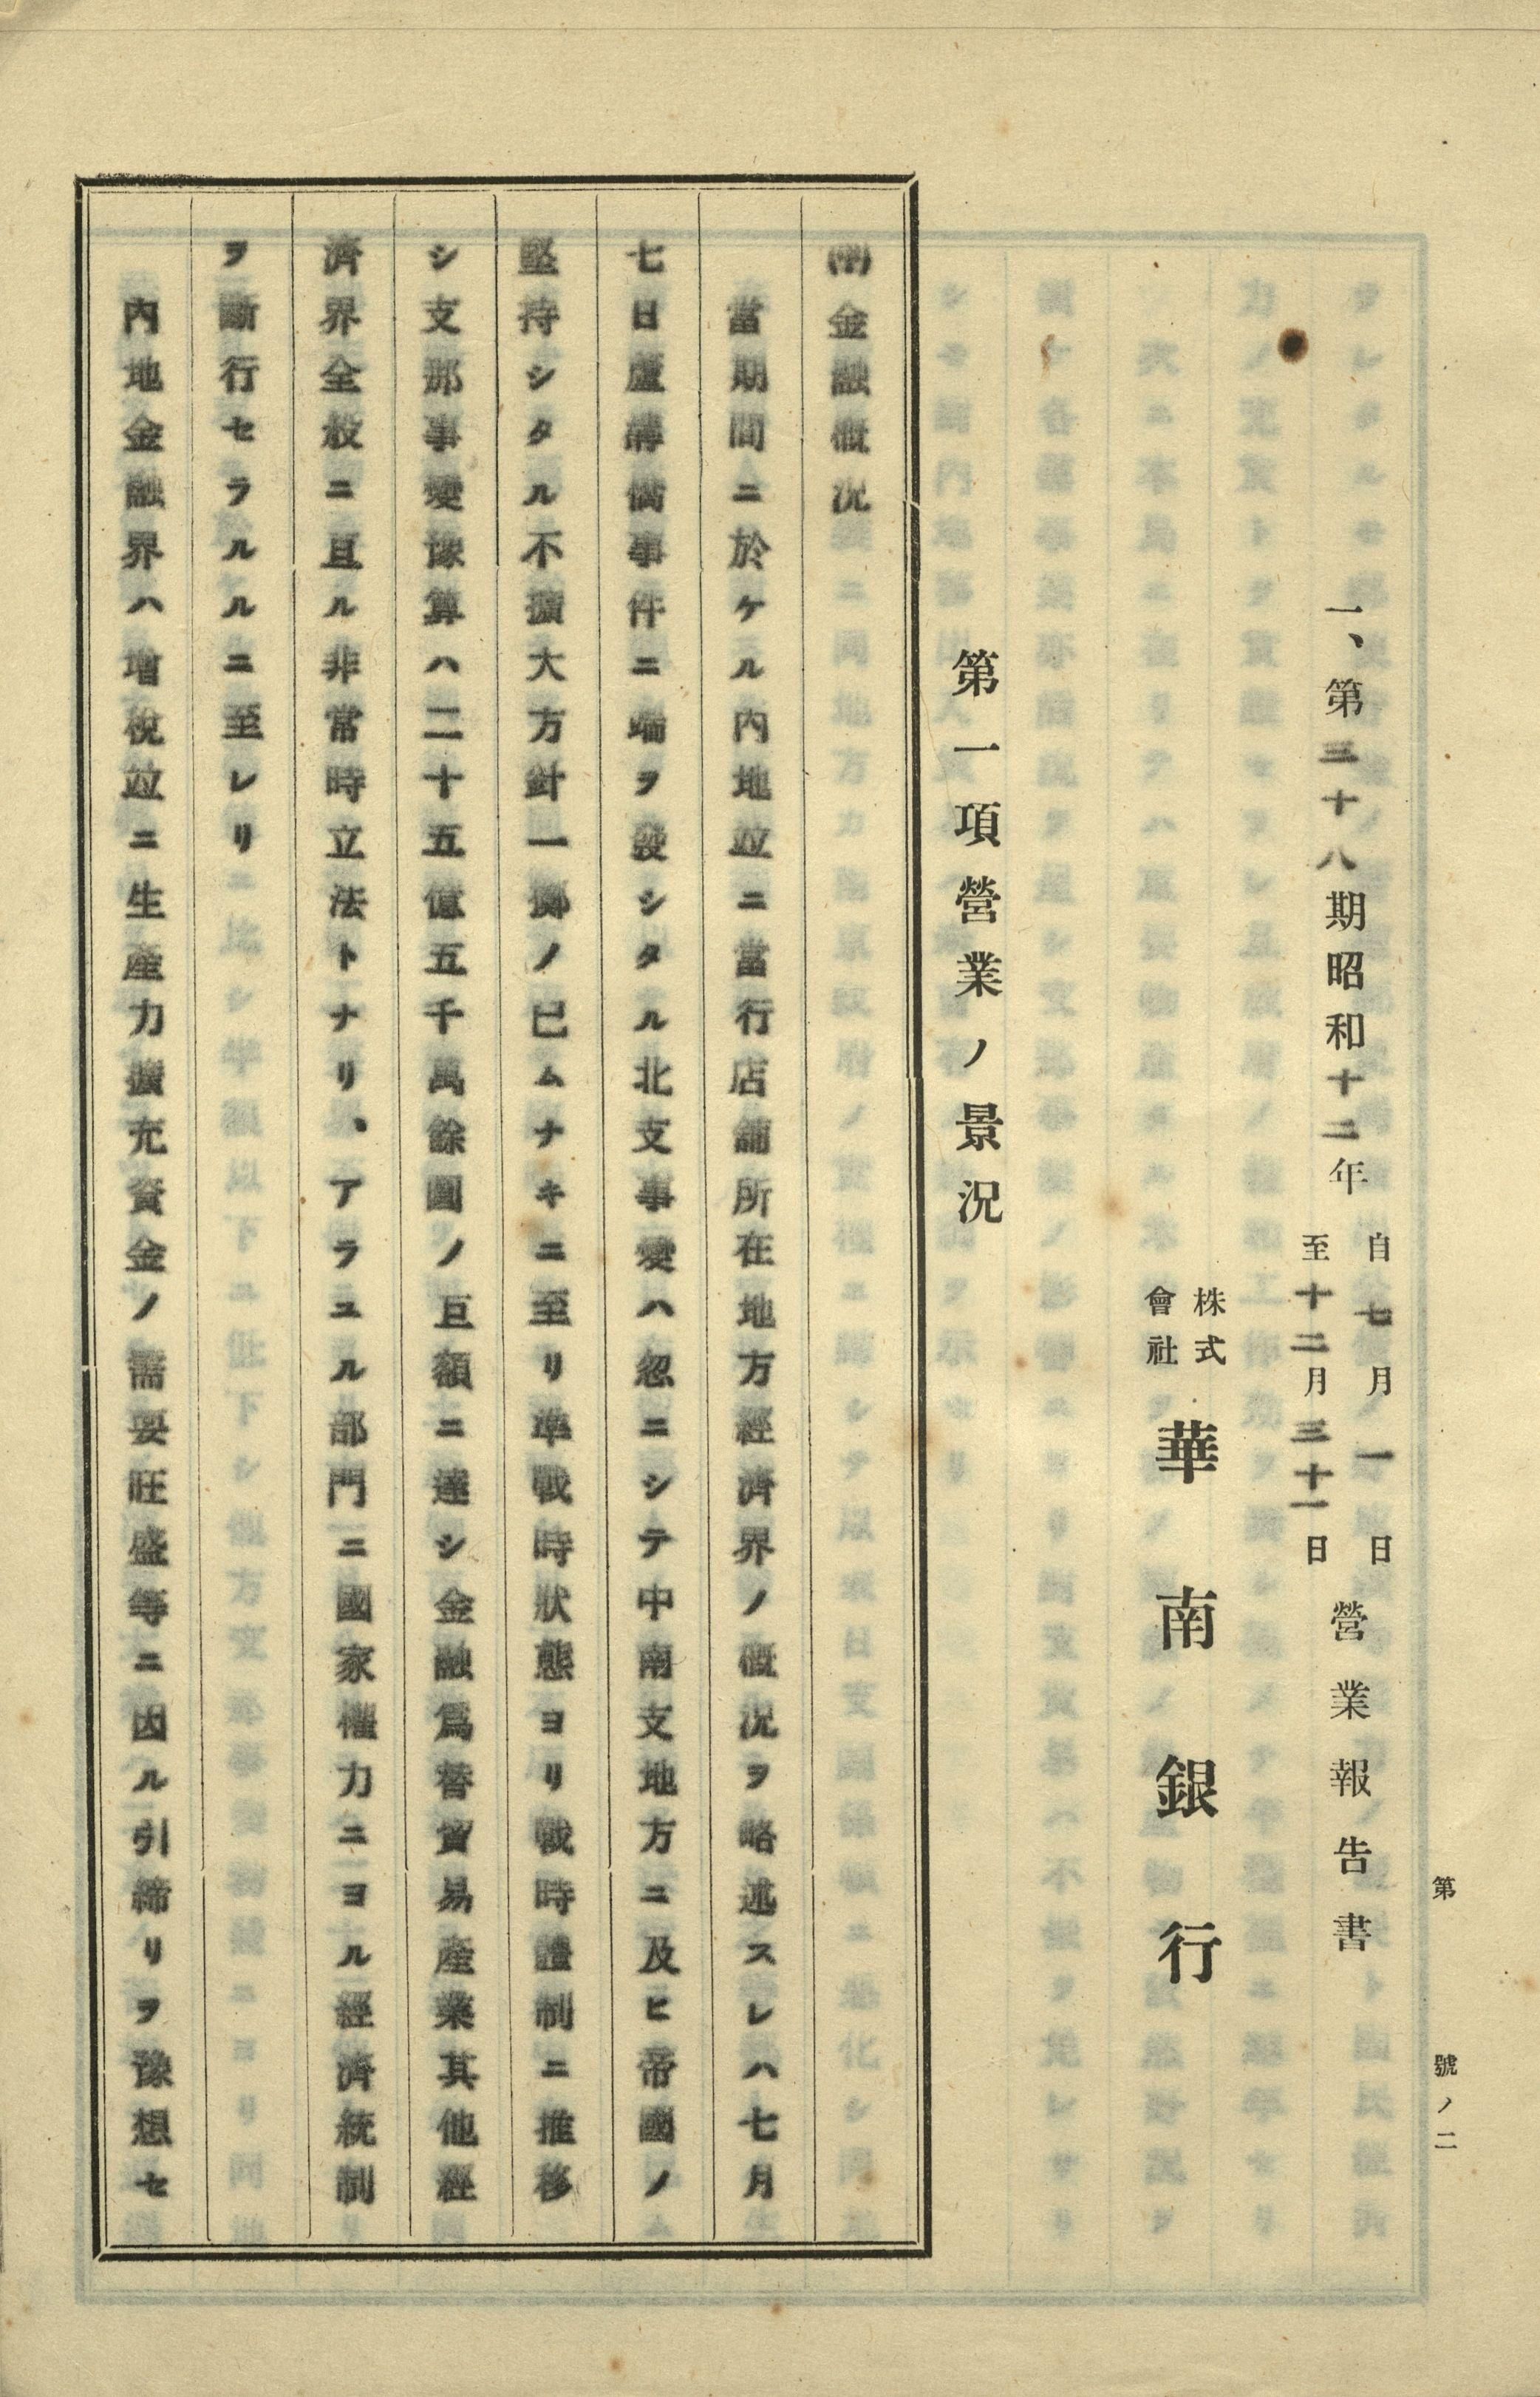 第　號ノ二
一、第三十八期昭和十二年 自七月一日 至十二月三十一日 營業報告書
株式會社 華南銀行
第一項營業ノ景況
金融概況
當期間ニ於ケル內地竝ニ當行店舖所在地方經濟界ノ概況ヲ略述スレハ七月
七日蘆溝橋事件ニ端ヲ發シタル北支事變ハ忽ニシテ中南支地方ニ及ヒ帝國ノ
堅持シタル不擴大方針一擲ノ已ムナキニ至リ準戰時狀態ヨリ戰時體制ニ推移
シ支那事變豫算ハ二十五億五千萬餘圓ノ巨額ニ達シ金融爲替貿易產業其他經
濟界全般ニ亘ル非常時立法トナリ、アラユル部門ニ國家權力ニヨル經濟統制
ヲ斷行セラルルニ至レリ
內地金融界ハ增稅竝ニ生產力擴充資金ノ需要旺盛等ニ因ル引締リヲ豫想セ